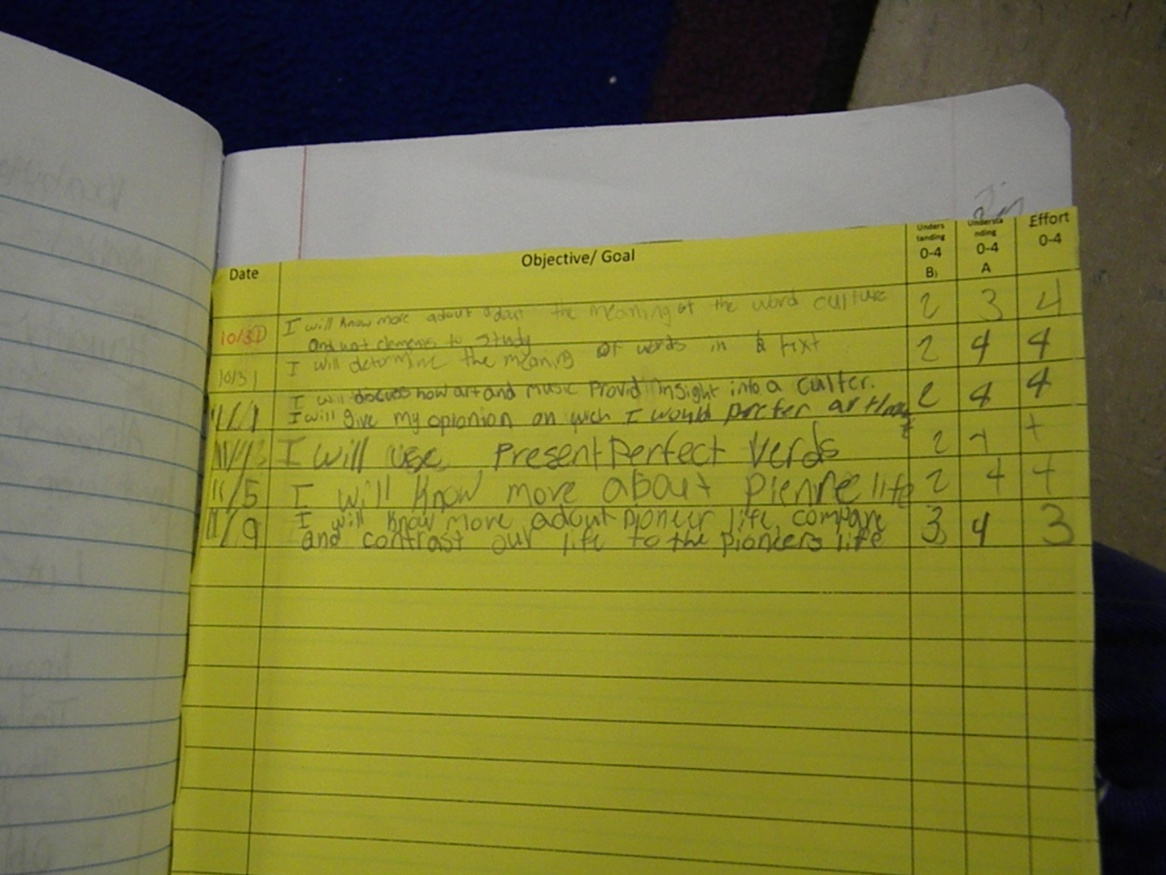 Date Objective/ Goal Unders tanding 0-4 B) Understa nding 0-4 A Effort 0-4
10/31 I will know more adout the meaning of the word culture 2 3 4
and elements to study
10/31 I will determine the meaning of words in text 2 4 4
11/1 I will discuss how art and music Provid insight into a culter. 2 4 4
I will give my opionion on wich I would prefer art
I will use Present Perfect Verds 2 4 4
11/5 I will Know more about pienne life 2 4 4
11/9 I will Know more adout pioneer life, compare 3 4 3
and contrast our life to the pioneers life